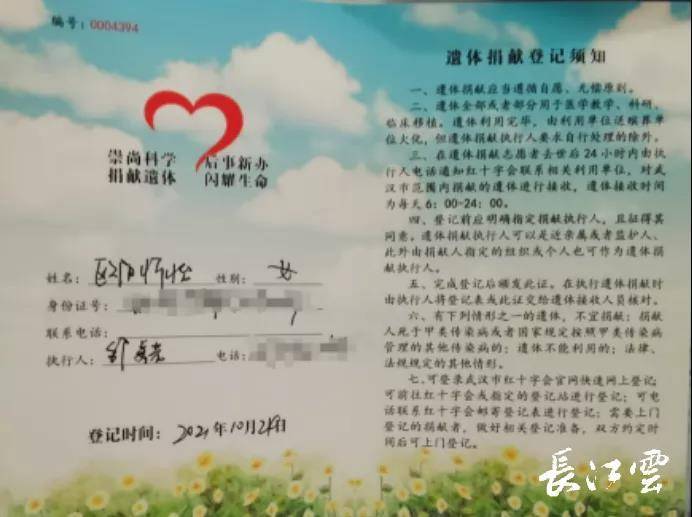 编号：0004394
崇尚科学 后事新办
捐献遗体 闪耀生命
姓名： 性别：女
身份证号：
联系电话：
执行人： 电话：
登记时间：2021年10月24日
遗体捐献登记须知
一、遗体捐献应当遵循自愿、无偿原则。
二、遗体全部或者部分用于医学教学、科研、
临床移植。遗体利用完毕，由利用单位送殡葬单
位火化，但遗体捐献执行人要求自行处理的除外。
三、在遗体捐献志愿者去世后24小时内由执
行人电话通知红十字会联系相关利用单位，对武
汉市范围内捐献的遗体进行接收，遗体接收时间
为每天6：00-24：00。
四、登记前应明确指定捐献执行人，且征得其
同意。遗体捐献执行人可以是近亲属或者监护人、
此外由捐献人指定的组织或个人也可作为遗体捐
献执行人。
五、完成登记后颁发此证。在执行遗体捐献时
由执行人将登记表或此证交给遗体接收人员核对。
六、有下列情形之一的遗体，不宜捐献：捐献
人死于甲类传染病或者国家规定按照甲类传染病
管理的其他传染病的；遗体不能利用的；法律、
法规规定的其他情形。
七、可登录武汉市红十字会官网快速网上登记；
可前往红十字会或指定的登记站进行登记；可电
话联系红十字会邮寄登记表进行登记；需要上门
登记的捐献者，做好相关登记准备，双方约定时
间后可上门登记。
長江雲